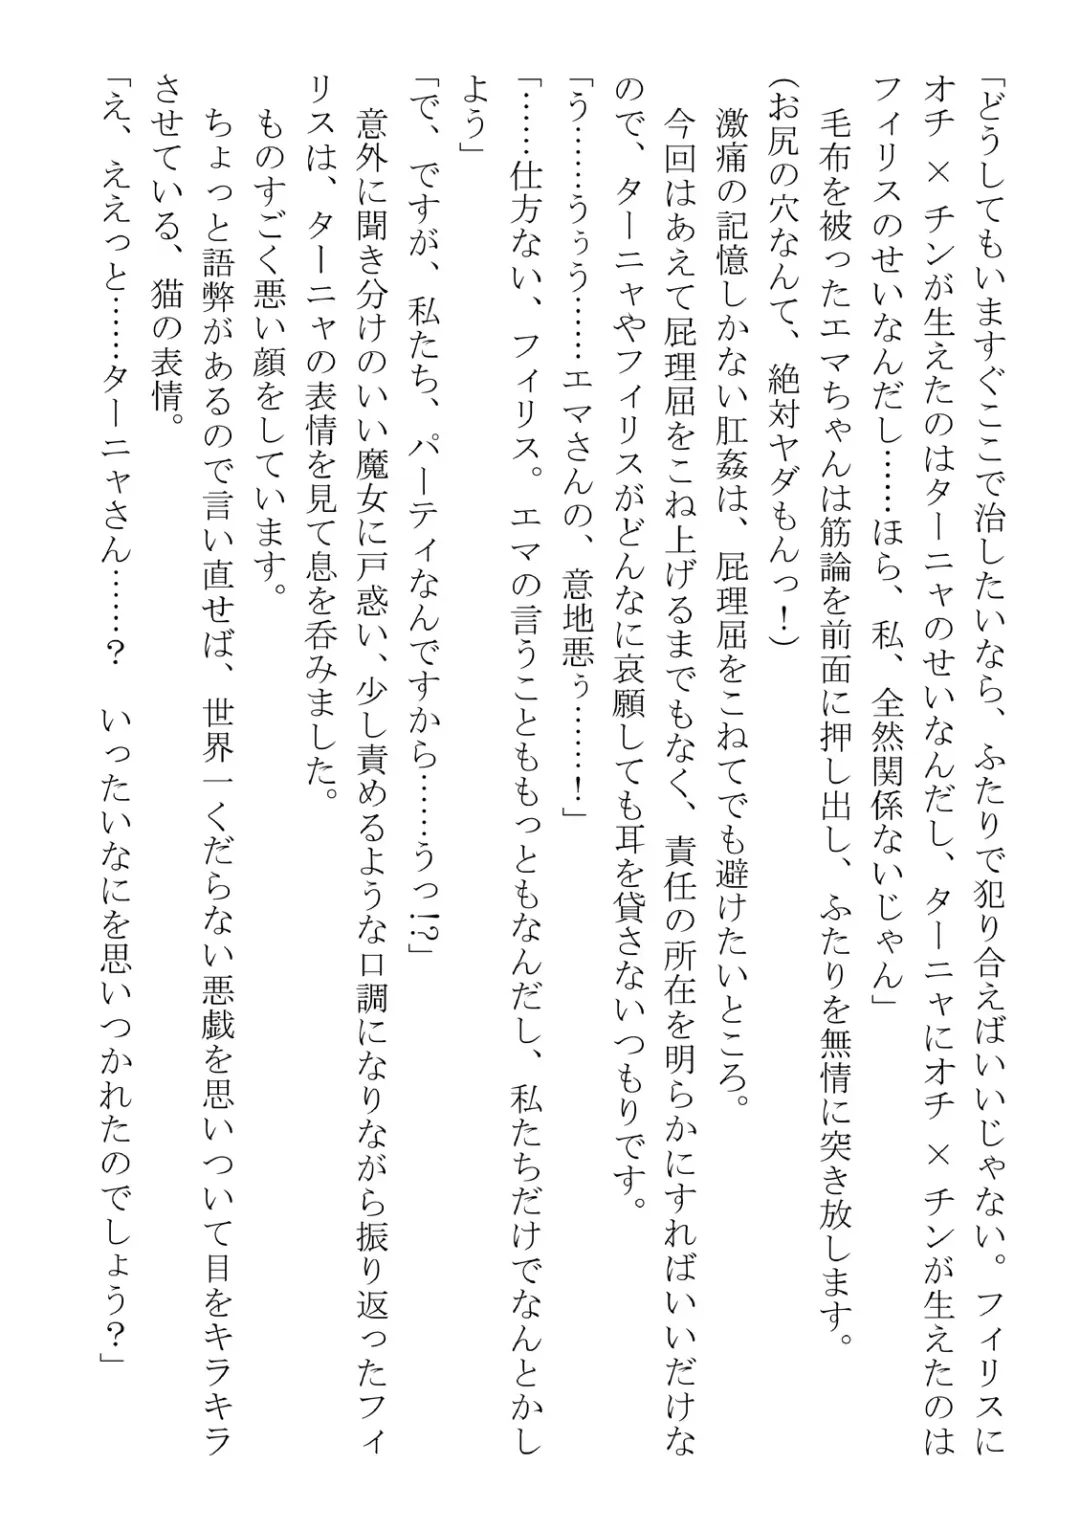 「どうしてもいますぐここで治したいなら、ふたりで犯り合えばいいじゃない。フィリスに
オチ×チンが生えたのはターニャのせいなんだし、ターニャにオチ×チンが生えたのは
フィリスのせいなんだし……ほら、私、全然関係ないじゃん」
　毛布を被ったエマちゃんは筋論を前面に押し出し、ふたりを無情に突き放します。
（お尻の穴なんて、絶対ヤダもんっ！）
　激痛の記憶しかない肛姦は、屁理屈をこねてでも避けたいところ。
　今回はあえて屁理屈をこね上げるまでもなく、責任の所在を明らかにすればいいだけな
ので、ターニャやフィリスがどんなに哀願しても耳を貸さないつもりです。
「う……うぅう……エマさんの、意地悪ぅ……！」
「……仕方ない、フィリス。エマの言うことももっともなんだし、私たちだけでなんとかし
よう」
「で、ですが、私たち、パーティなんですから……うっ!?」
　意外に聞き分けのいい魔女に戸惑い、少し責めるような口調になりながら振り返ったフィ
リスは、ターニャの表情を見て息を呑みました。
　ものすごく悪い顔をしています。
　ちょっと語弊があるので言い直せば、世界一くだらない悪戯を思いついて目をキラキラ
させている、猫の表情。
「え、ええっと……ターニャさん……？　いったいなにを思いつかれたのでしょう？」